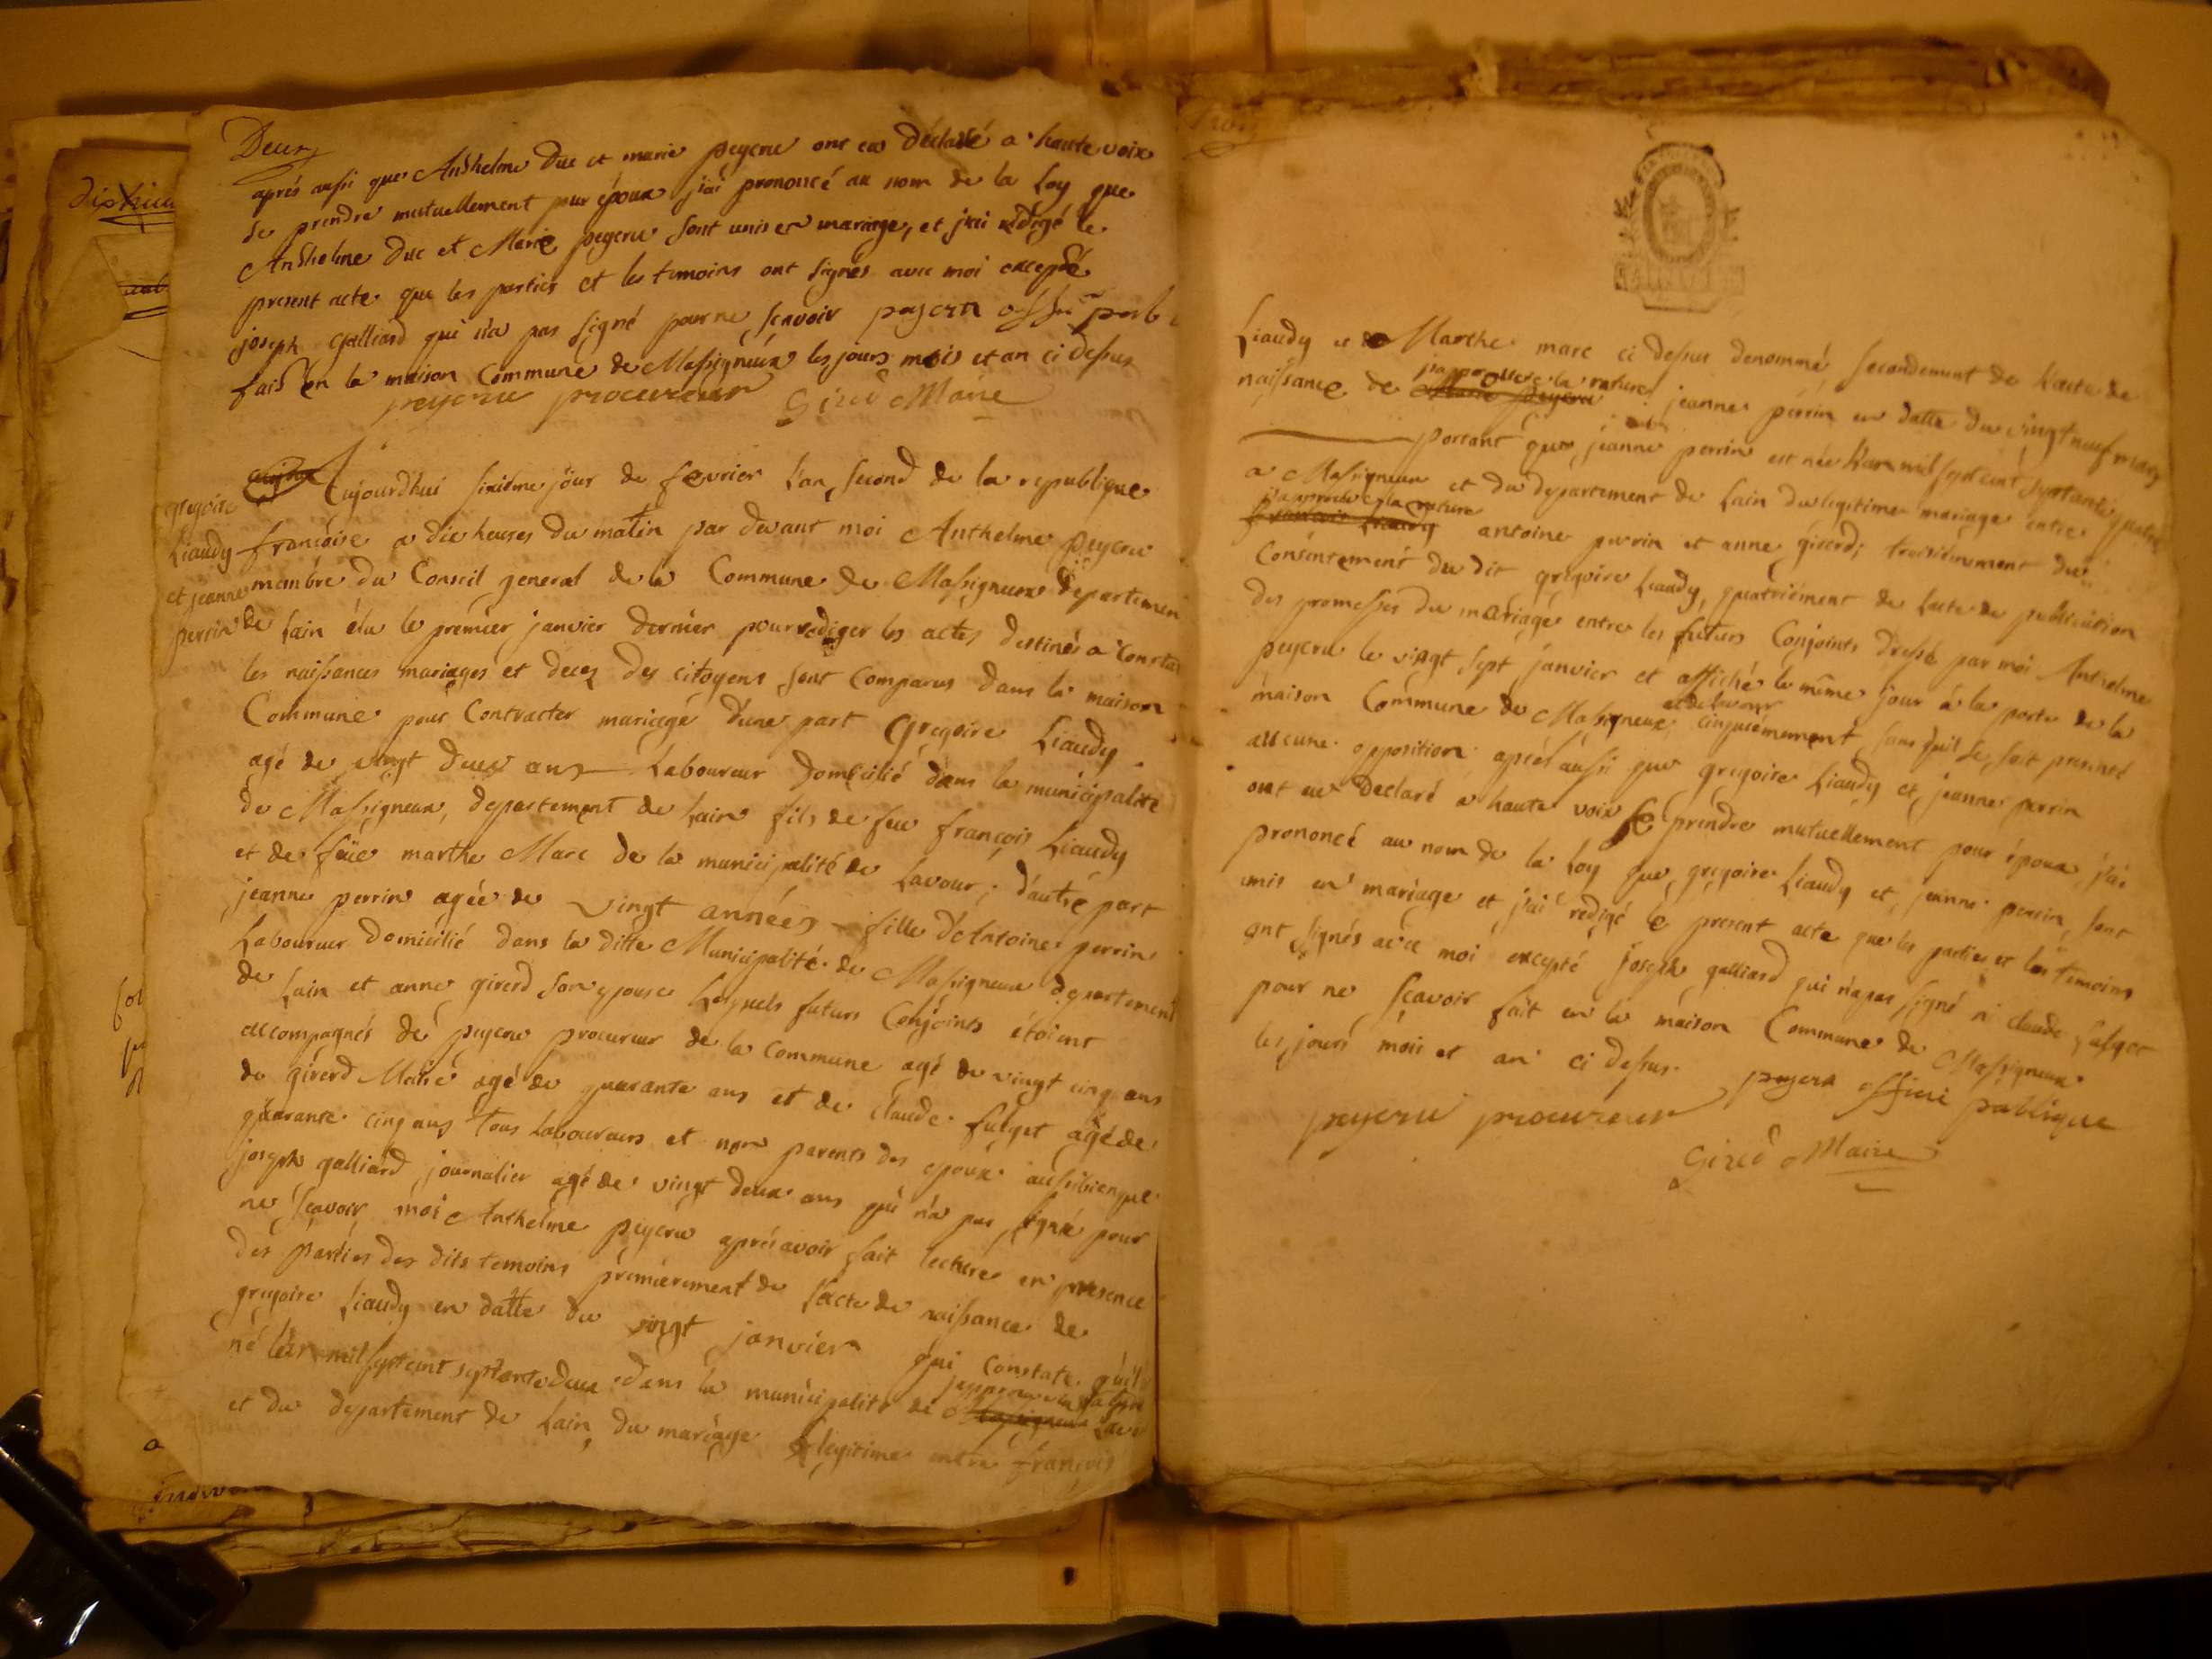 Deux
après aussi que Anthelme Duc et marie peycru ont eu déclaré a haute voix
se prendre mutuellement pour époux j'ai prononcé au nom de la Loy que
Anthelme Duc et Marie peycru sont unis en mariage, et j'ai rédigé le
present acte que les parties et les temoins ont signés avec moi excepté
joseph galliard qui n'a pas signé pour ne scavoir
fait en la maison Commune de Massigneux les jours mois et an ci dessus
peycru procureur Gired Maire
gregoire
Liaudy
et jeanne
perrin
Aujourdhui sixième jour de fevrier L'an second de la republique
françoise a dix heures du matin par devant moi Anthelme peycru
membre du Conseil general de la Commune de Massigneux departemen
de Lain élu le premier janvier dernier pour rediger les actes destinés a Consta
les naissances mariages et decez des citoyens sont Comparus dans la maison
Commune pour Contracter mariage d'une part Gregoire Liaudy
agé de vingt deux ans Laboureur Domicilié dans la municipalité
de Massigneux, departement de Lain fils de feu françois Liaudy
et de feüe marthe Marc de la municipalité de Lavour; d'autre part
jeanne perrin agée de vingt années fille d'Antoine perrin
Laboureur Domicilié dans la ditte Municipalité de Massigneux departement
de Lain et anne girerd son epouse Lesquels futurs Conjoints étoient
accompagnés de peycru procureur de la Commune agé de vingt cinq ans
de girerd Maire agé de quarante ans et de Claude fulget agé de
quarante cinq ans tous Laboureurs et non parents des epoux aussi bien que
joseph galliard journalier agé de vingt deux ans qui n'a pas signé pour
ne scavoir, moi Anthelme peycru après avoir fait lecture en presence
des parties des dits temoins premierement de Lacte de naissance de
gregoire Liaudy en datte du vingt janvier qui Constate qu'il
né L'an mil sept cent septante deux dans la municipalité de
et du departement de Lain, du mariage legitime entre françois
Liaudy et Marthe marc ci dessus denommé secondement de L'acte de
j'approuve la rature
naissance de Marie peycru jeanne perrin en datte du vingt neuf mars
portant que jeanne perrin est née L'an mil sept cent septante quatre
a Massigneux et du departement de Lain du legitime mariage entre
j'approuve la rature
françois Liaudy antoine perrin et anne girerd; troisiemement du
Consentement du dit gregoire Liaudy, quatriément de Lacte de publication
des promesses du mariage entre les futurs Conjoints Dressé par moi Anthelme
peycru le vingt sept janvier et affiché le même jour à la porte de la
et de lavour
maison Commune de Massigneux cinquiémement sans qu'il se soit presenté
aucune opposition après aussi que gregoire Liaudy et jeanne perrin
ont eu Declaré a haute voix se prendre mutuellement pour époux j'ai
prononcé au nom de la Loy que gregoire Liaudy et jeanne perrin sont
unis en mariage et j'ai redigé le present acte que les parties et les temoins
ont signés avec moi excepté joseph galliard qui n'a pas signé ni claude fulget
pour ne scavoir fait en la maison Commune de Massigneux
les jours mois et an ci dessus.
peycru procureur
Gired Maire